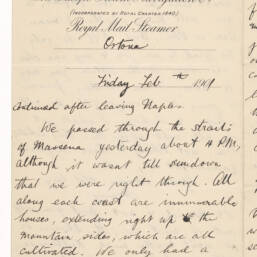 (INCORPORATED BY ROYAL CHARTER 1840.)
Royal Mail Steamer
Ortona
Friday Feb th 1901
Continued after leaving Naples
We passed through the straits
of Massena yesterday about 4 PM,
although it wasnt till sundown
that we were right through. All
along each coast are innumerable
houses, extending right up to the
mountain sides, which are all
cultivated. We only had a